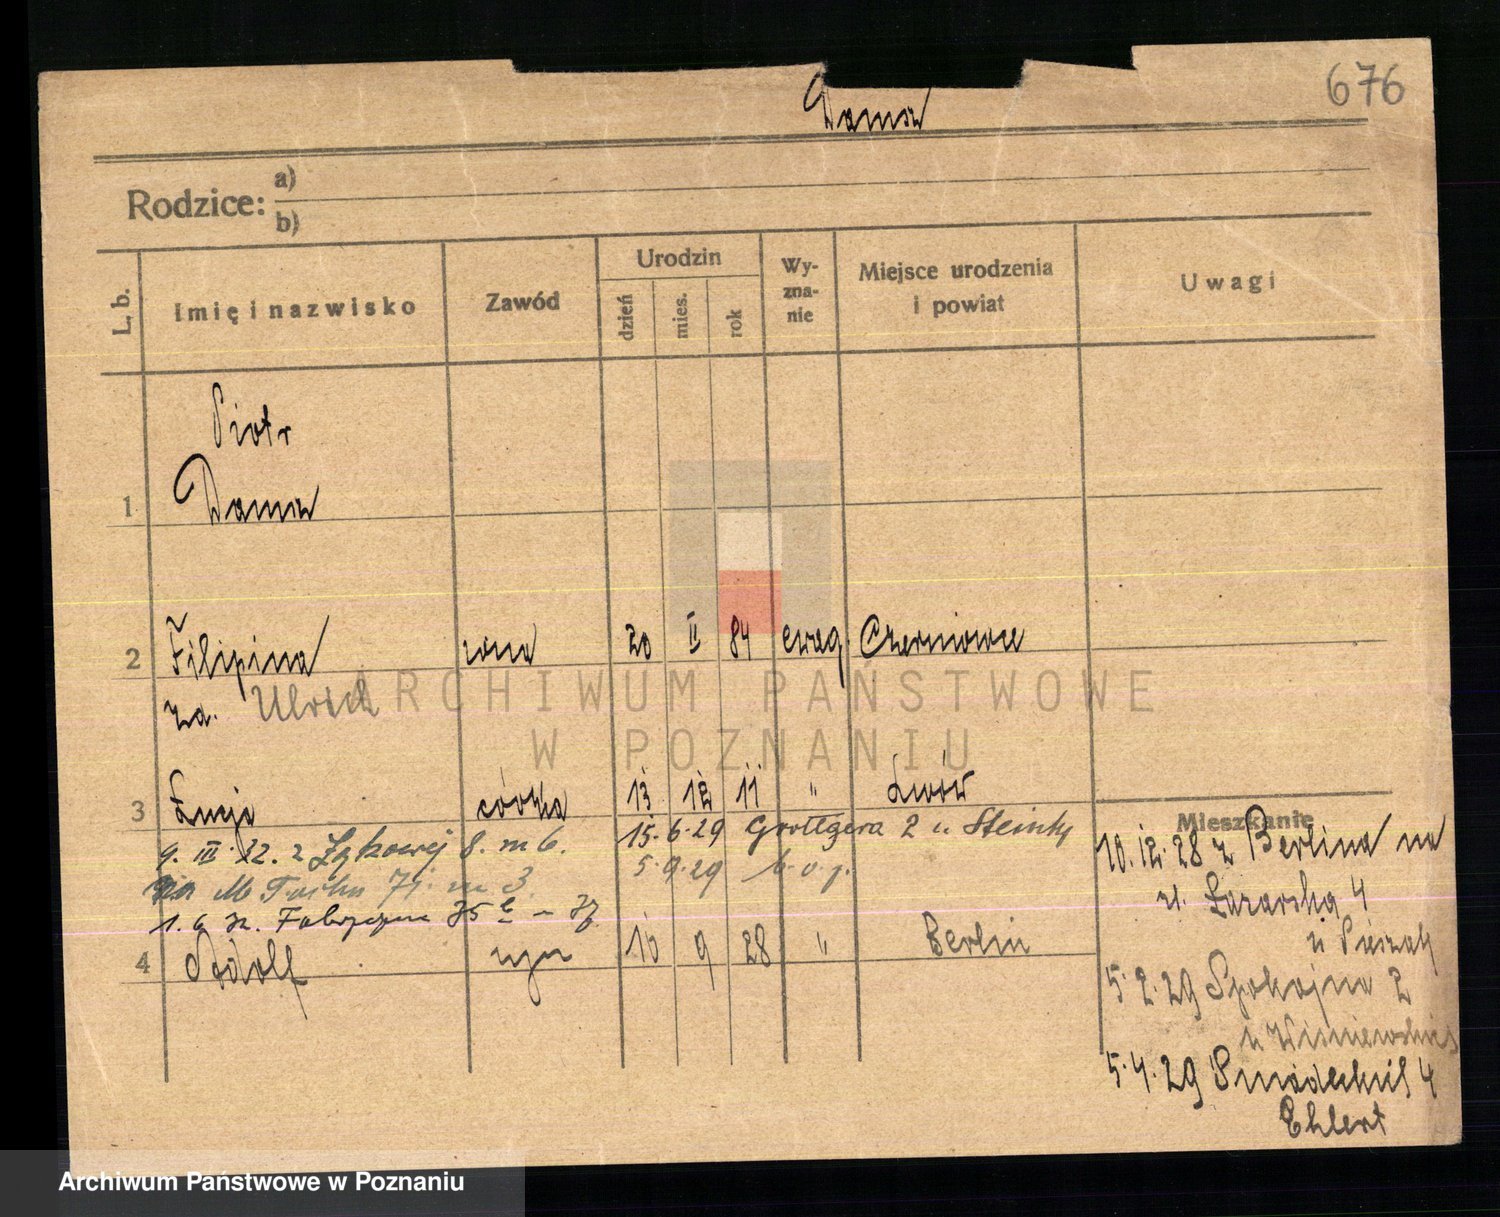 676
Rodzice: a)
b)
L. b.
Imię i nazwisko
Zawód
Urodzin
dzień
mies.
rok
Wy-
zna-
nie
Miejsce urodzenia
i powiat
Uwagi
Piotr
1
2 Filipina żona 20 II 84 ewag. Czerniowce
za. Ulrich
ARCHIWUM PAŃSTWOWE
W POZNANIU
3 Łucja córka 13 12 11 " Lwów
Mieszkanie
9. III 32. z 8. m 6. 15. 6. 29 Grottgera 2 u
5. 9. 29
na m 3
1. 6
4 Adolf syn 16 9 28 " Berlin
10. 12. 28 z Berlina na
ul. Łazarska 4
u
5. 2. 29 Spokojna 2
u Wiśniewskiej
5. 4. 29 Śniadeckich 4
Ehlert
Archiwum Państwowe w Poznaniu